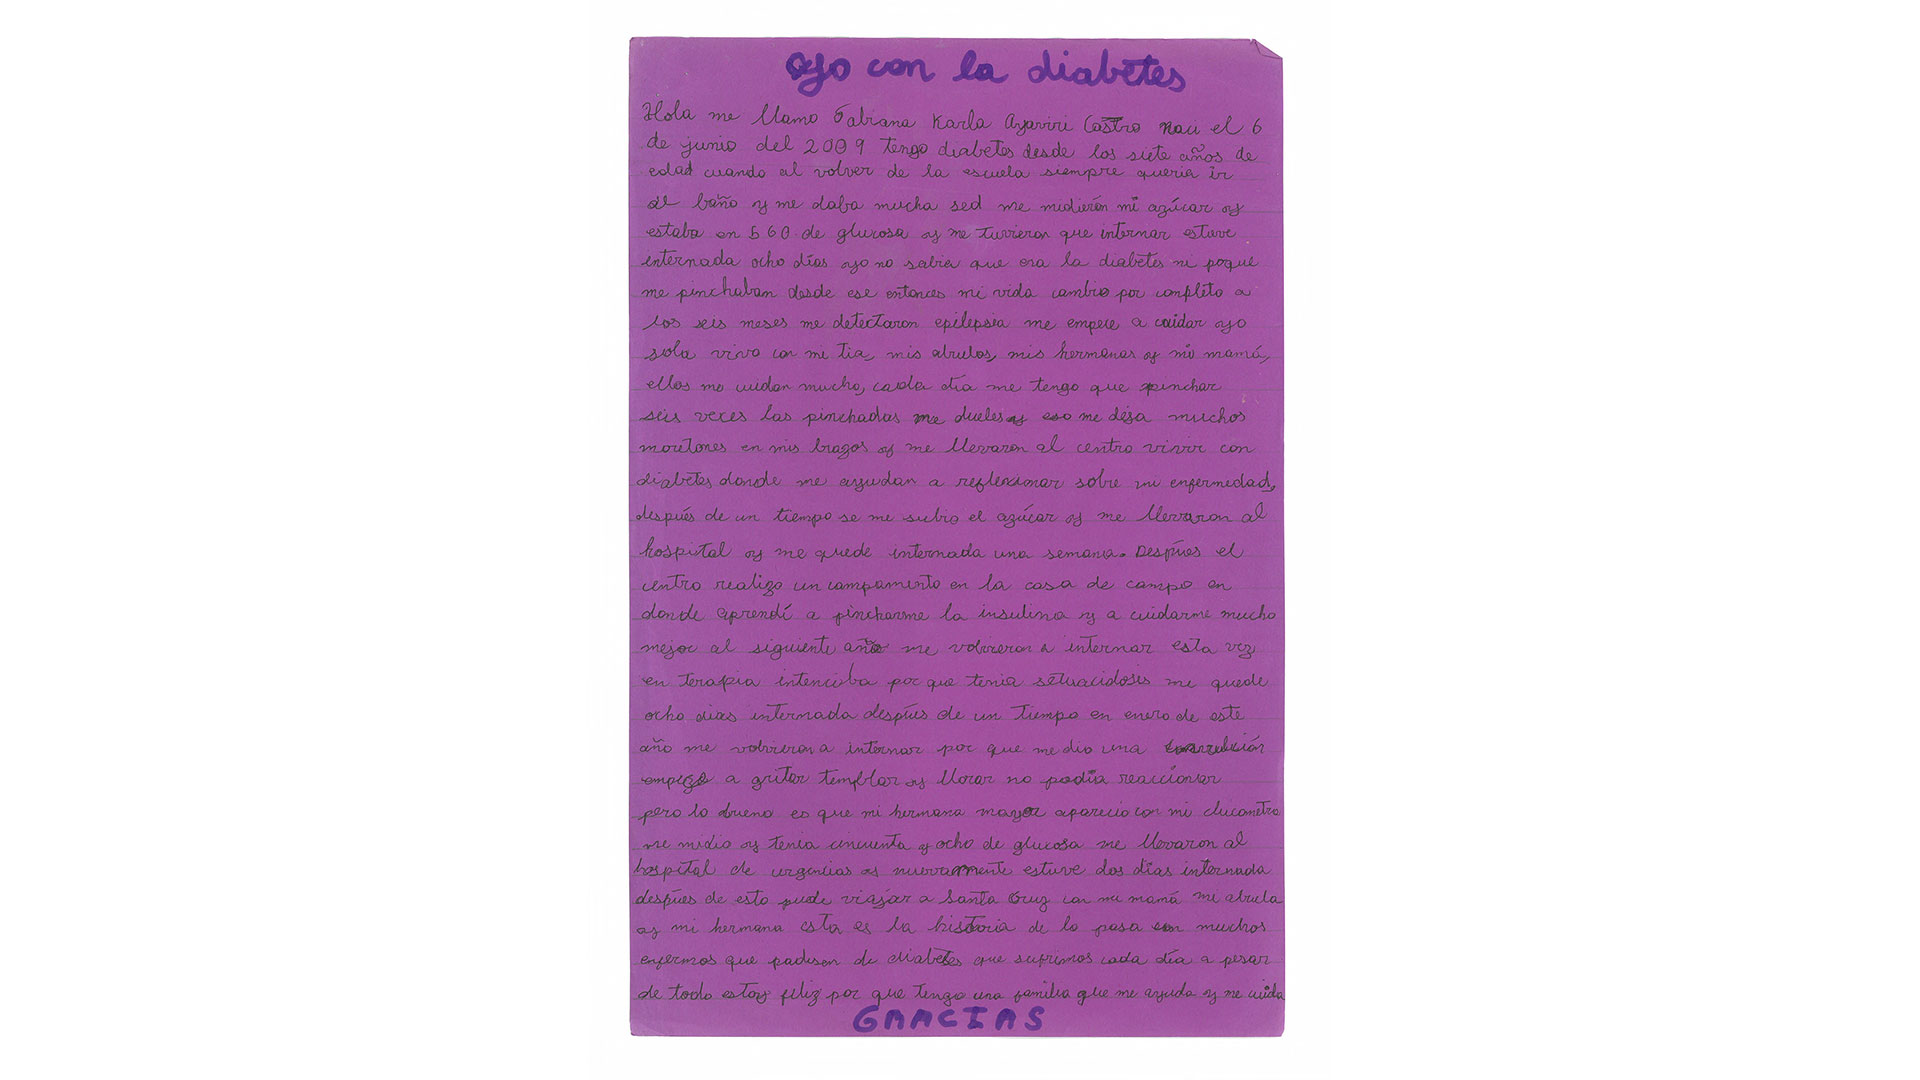 oyo con la diabetes
Hola me llamo Fabiana Karla Ayaviri Castro naci el 6
de junio del 2009 tengo diabetes desde los siete años de
edad cuando al volver de la escuela siempre queria ir
al baño y me daba mucha sed me midierón mi azúcar y
estaba en 560 de glucosa y me tuvieron que internar estuve
internada ocho días yo no sabia que era la diabetes ni poque
me pinchaban desde ese entonces mi vida cambio por conpleto a
los seis meses me detectaron epilepsia me empece a cuidar yo
sola vivo con mi tia, mis abuelos, mis hermanas y mi mamá,
ellos me cuidan mucho, cada día me tengo que pinchar
seis veces las pinchadas me dueles y eso me deja muchos
moretones en mis brazos y me llevaron al centro vivir con
diabetes donde me ayudan a reflexionar sobre mi enfermedad,
despúes de un tiempo se me subio el azúcar y me llevaron al
hospital y me quede internada una semana. Despúes el
centro realizo un campamento en la casa de campo en
donde aprendí a pincharme la insulina y a cuidarme mucho
mejor al siguiente año me volvieron a internar esta vez
en terapia intenciba por que tenia setuacidosis me quede
ocho dias internada despúes de un tiempo en enero de este
año me volvieron a internar por que me dio una
empeze a gritar templar y llorar no podia reaccionar
pero lo bueno es que mi hermana mayor aparecio con mi clucometro
me midio y tenia cincuenta y ocho de glucosa me llevaron al
hospital de urgencias y nuevamente estuve dos días internada
despúes de esto pude viajar a Santa Cruz con mi mamá mi abuela
y mi hermana esta es la historia de lo pasa con muchos
enfermos que padisen de diabetes que sufrimos cada día a pesar
de todo estoy feliz por que tengo una familia que me ayuda y me cuida
GRACIAS